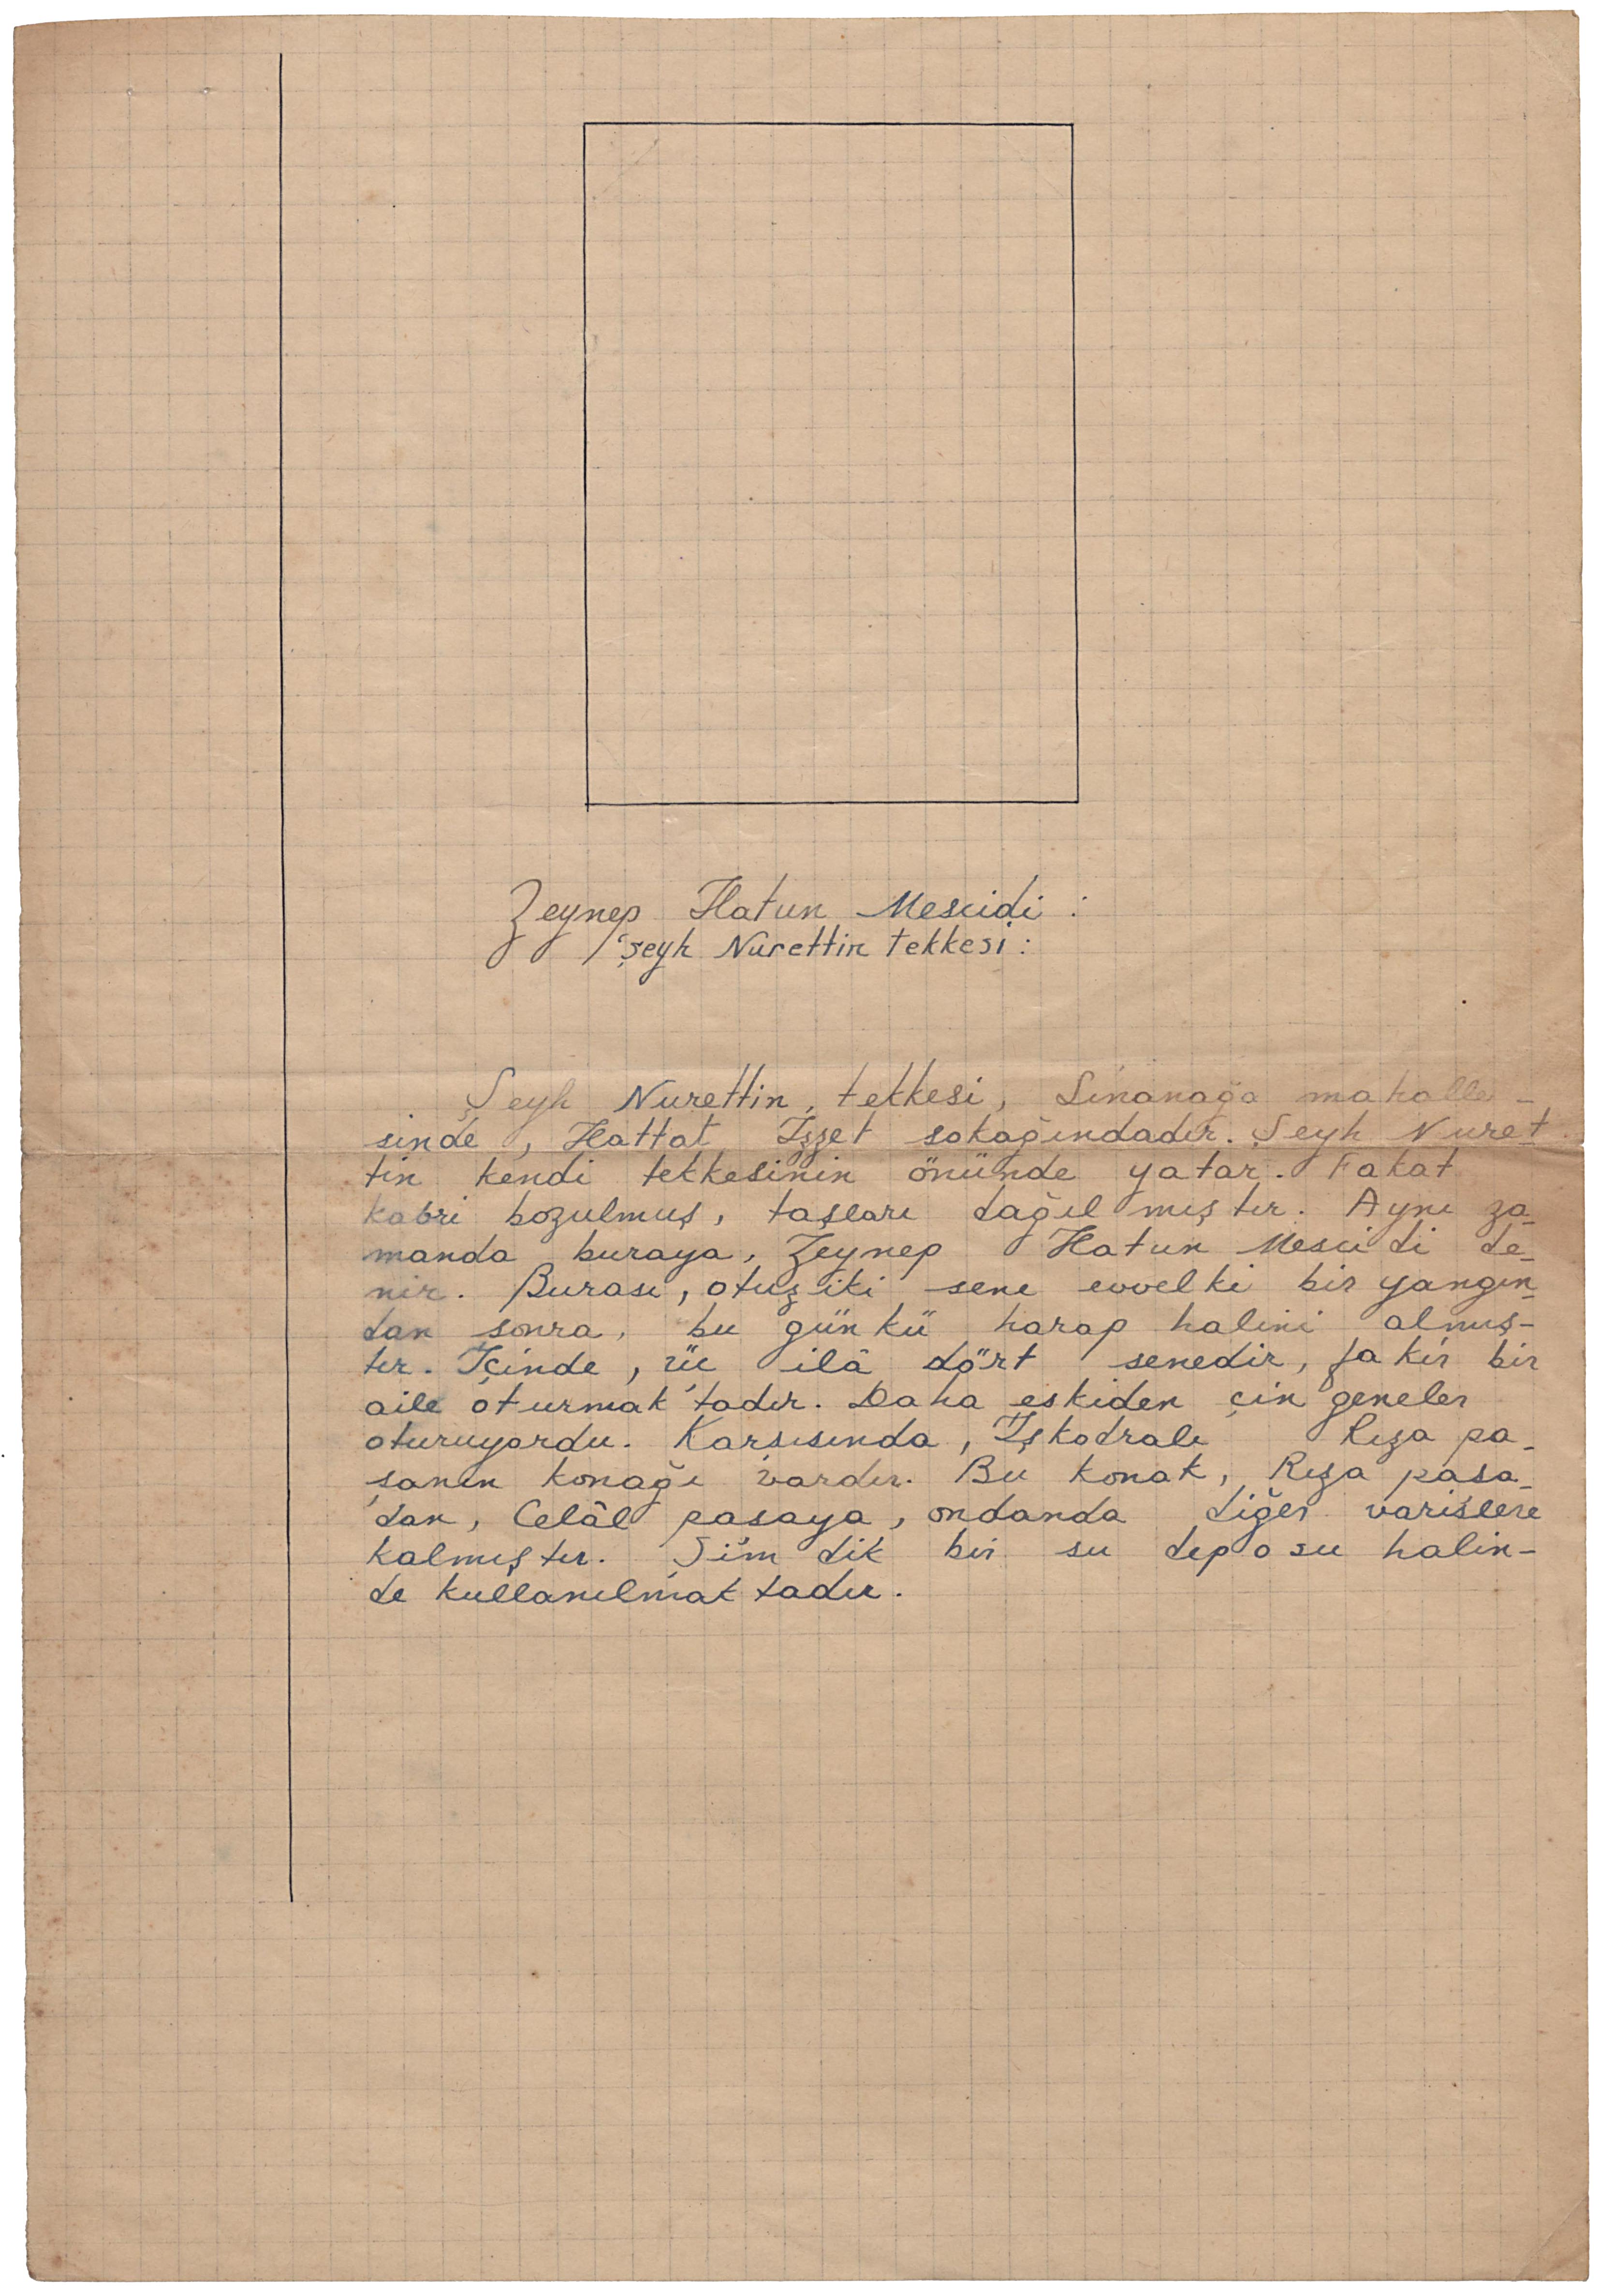 Zeynep Hatun Mescidi :
Şeyh Nurettin tekkesi :
Şeyh Nurettin, tekkesi, Sinanağa mahalle-
sinde, Hattat İzzet sokağındadır. Şeyh Nuret-
tin kendi tekkesinin önünde yatar. Fakat
kabri bozulmuş, taşları dağılmıştır. Aynı za-
manda buraya, Zeynep Hatun Mescidi de-
nir. Burası, otuziki sene evvelki bir yangın-
dan sonra, bu günkü harap halini almış-
tır. İçinde, üç ilâ dört senedir, fakir bir
aile oturmaktadır. Daha eskiden çingeneler
oturuyordu. Karşısında, İşkodralı Rıza pa-
şanın konağı vardır. Bu konak, Rıza paşa-
dan, Celâl paşaya, ondanda diğer varislere
kalmıştır. Şimdik bir su deposu halin-
de kullanılmaktadır.